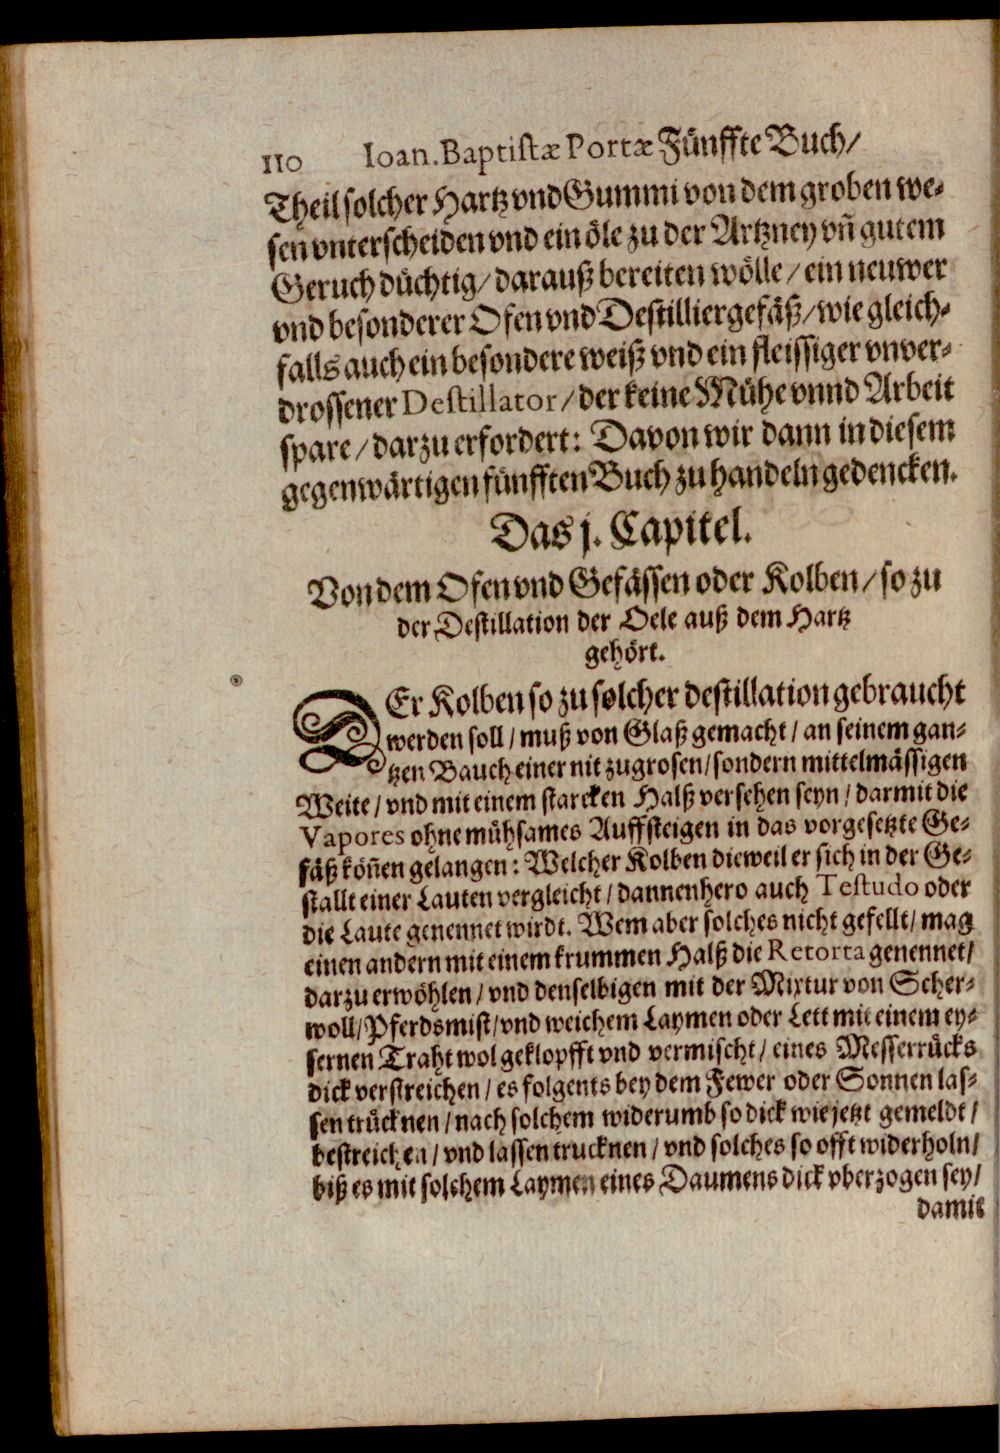 110 Ioan. Baptistæ Portæ Fünffte Buch/
Theil solcher Hartz vnd Gummi von dem groben we-
sen vnterscheiden vnd ein öle zu der Artzney vñ gutem
Geruch düchtig/ darauß bereiten wölle/ ein neuwer
vnd besonderer Ofen vnd Destilliergefäß/ wie gleich-
falls auch ein besondere weiß vnd ein fleissiger vnver-
drossener Destillator/ der keine Mühe vnnd Arbeit
spare/ darzu erfordert: Davon wir dann in diesem
gegenwärtigen fünfften Buch zu handeln gedencken.
Das j. Capitel.
Von dem Ofen vnd Gefässen oder Kolben/ so zu
der Destillation der Oele auß dem Hartz
gehört.
DEr Kolben so zu solcher destillation gebraucht
werden soll/ muß von Glaß gemacht/ an seinem gan-
tzen Bauch einer nit zu grosen/ sondern mittelmässigen
Weite/ vnd mit einem starcken Halß versehen seyn/ darmit die
Vapores ohne mühsames Auffsteigen in das vorgesetzte Ge-
fäß köñen gelangen: Welcher Kolben dieweil er sich in der Ge-
stallt einer Lauten vergleicht/ dannenhero auch Testudo oder
die Laute genennet wirdt. Wem aber solches nicht gefellt/ mag
einen andern mit einem krummen Halß die Retorta genennet/
darzu erwöhlen/ vnd denselbigen mit der Mixtur von Scher-
woll/ Pferdsmist/ vnd weichem Laymen oder Lett mit einem ey-
sernen Traht wol geklopfft vnd vermischt/ eines Messerrücks
dick verstreichen/ es folgents bey dem Fewer oder Sonnen las-
sen trücknen/ nach solchem widerumb so dick wie jetzt gemeldt/
bestreichen/ vnd lassen trucknen/ vnd solches so offt widerholn/
biß es mit solchem Laymen eines Daumens dick vberzogen sey/
damit